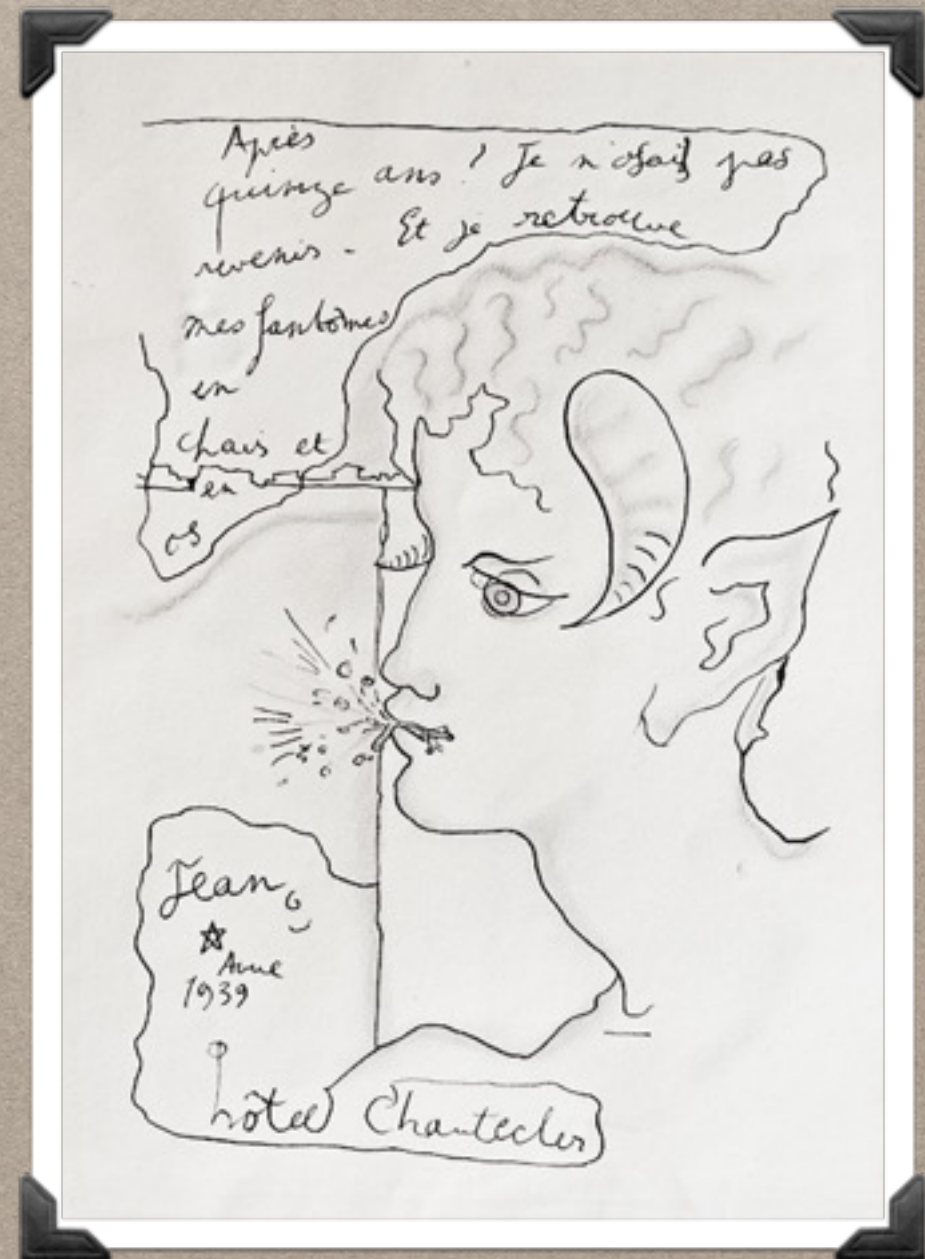 Après
quinze ans ! Je n'osais pas
revenir - Et je retrouve
mes fantômes
en
chair et
en
os
Jean
1939
hôtel Chantecler